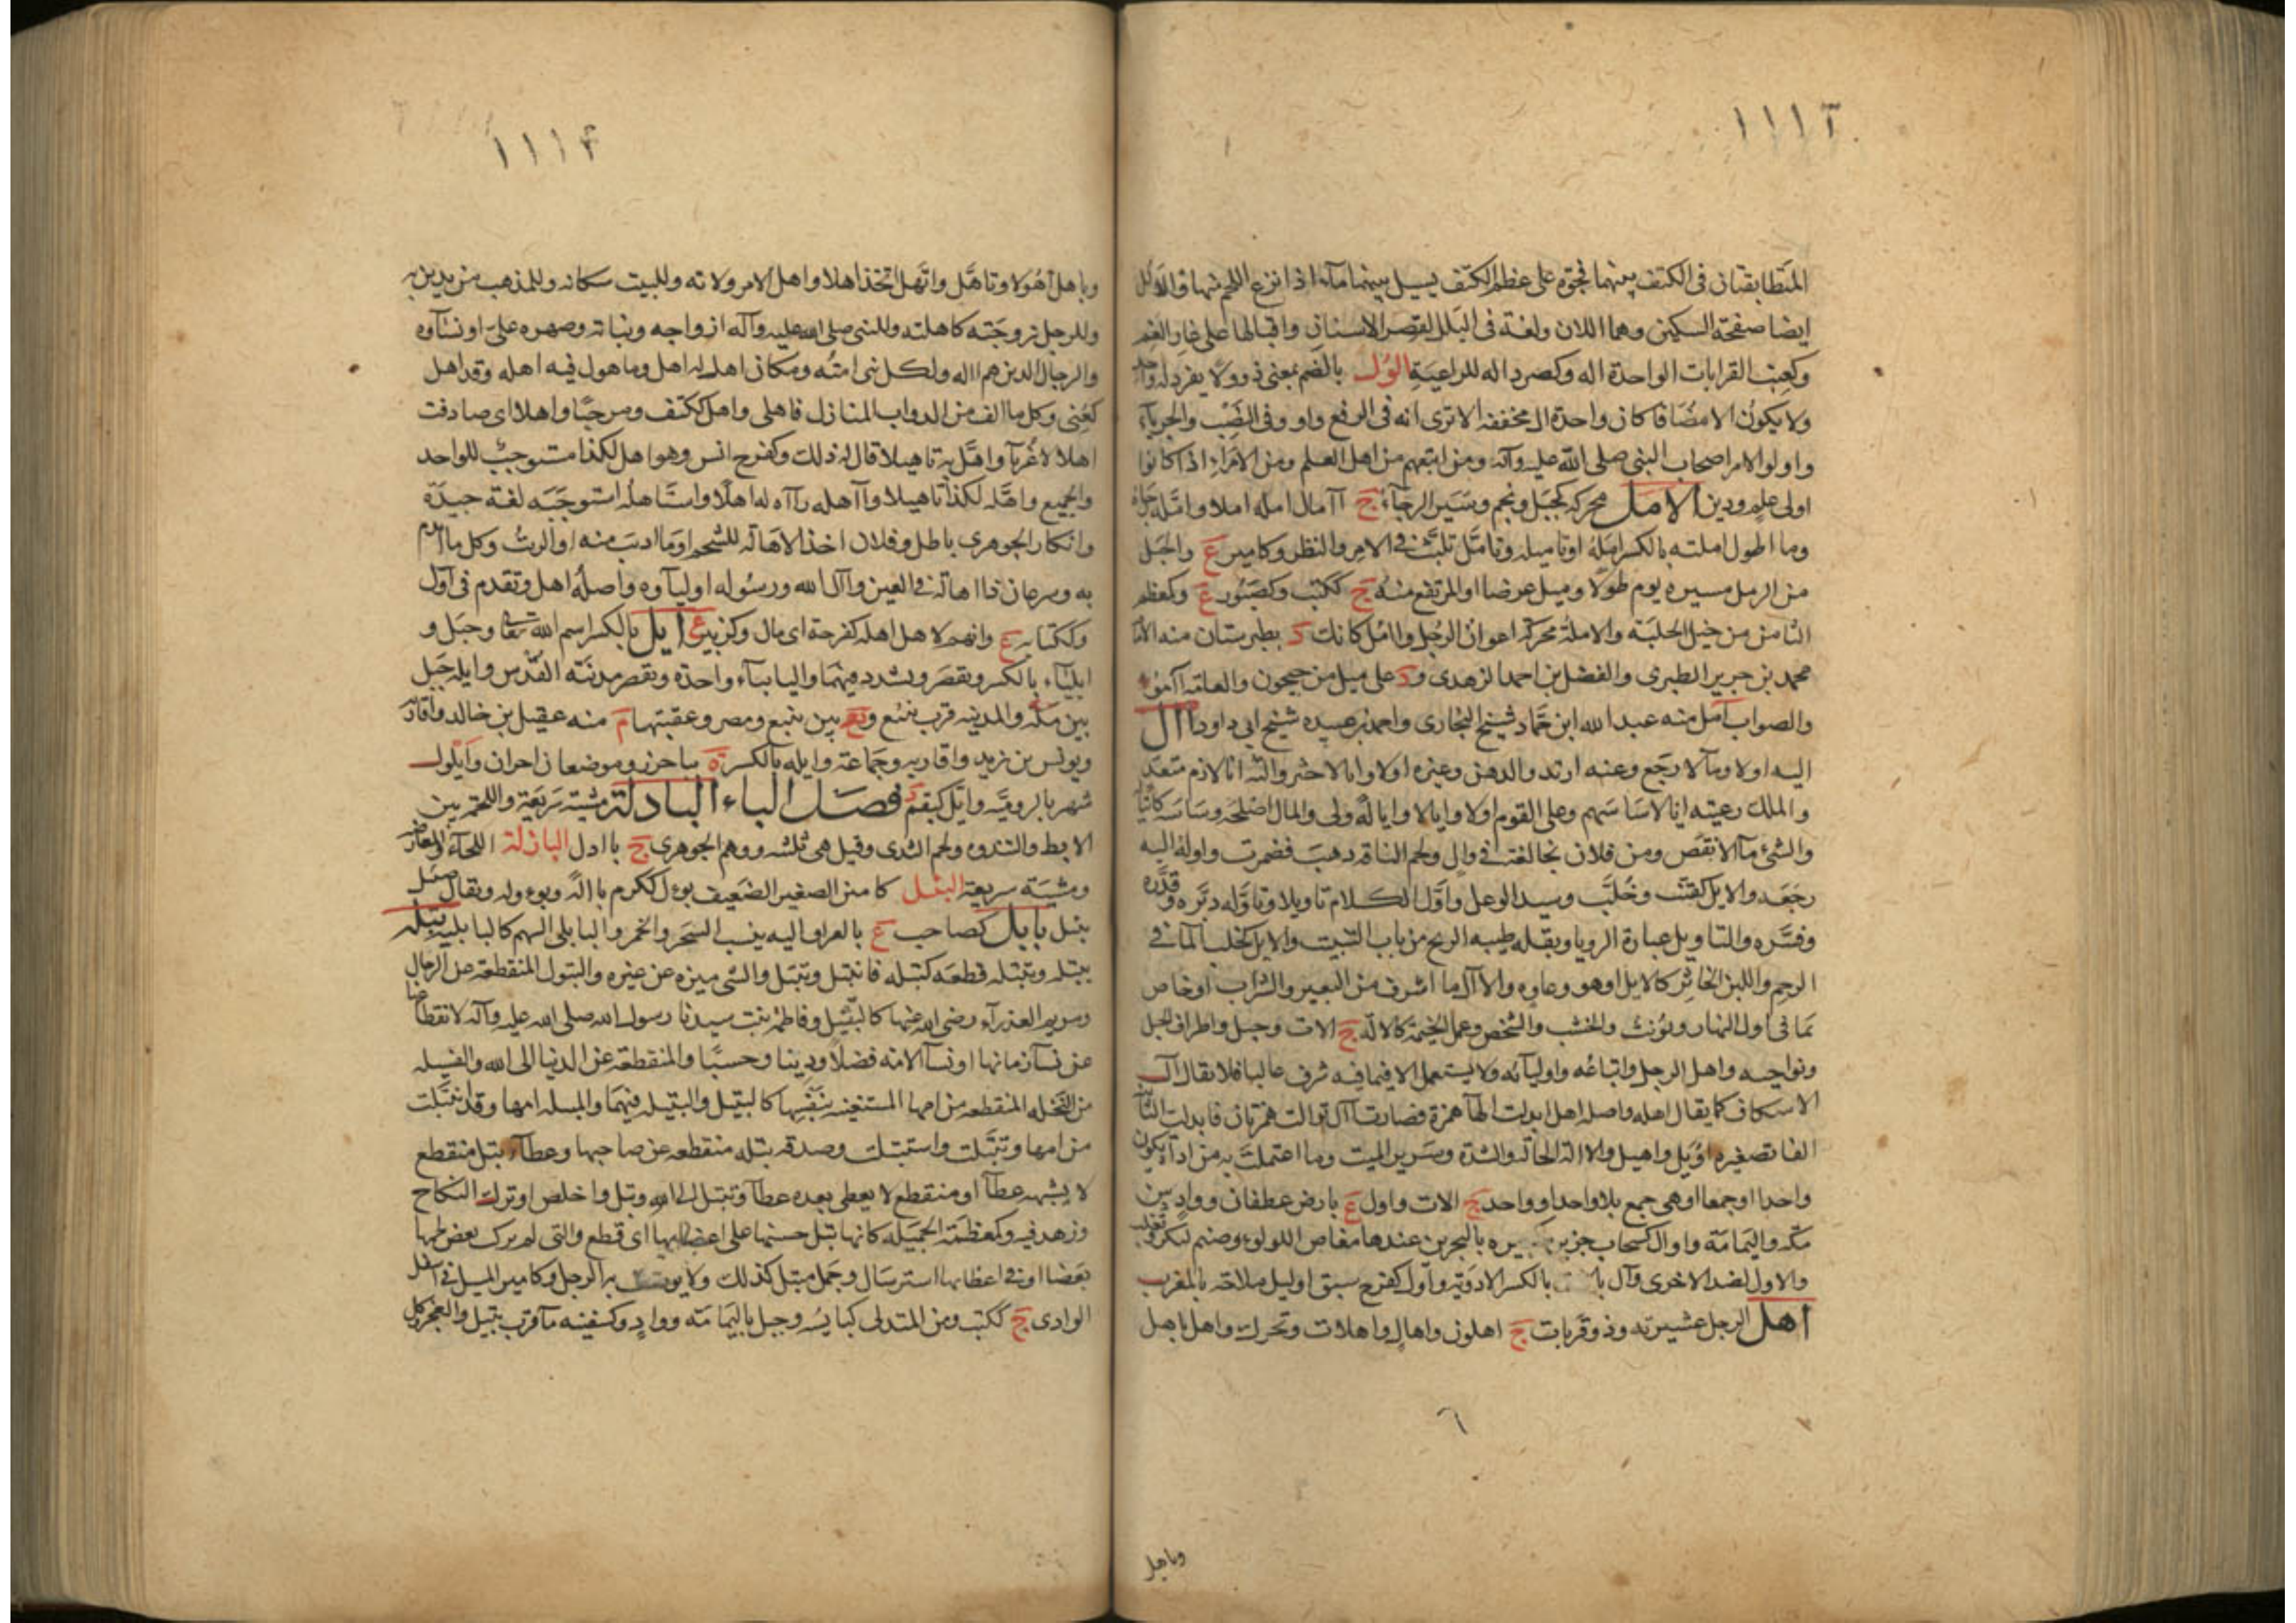 ١١١٢
المتطابقتان فى الكتف بينهما فجوة على عظم الكتف يسيل بينهما ماء اذا نزع اللحم منها والالل
ايضا صفحة السكين وهما اللان ولغة فى البلل لقصر الاسنان واقبالها على غار الفم
وكعنب القرابات الواحدة اله وكصرد اله للراعية الول بالضم بمعنى ذوو ولا يفرد له واحد
ولا يكون الا مضافا كان واحدة ال مخففة الا ترى انه فى الرفع واو وفى النصب والجر ياء
واولوا الامر اصحاب النبى صلى الله عليه وآله ومن اتبعهم من اهل العلم ومن الامراء اذا كانوا
اولى علم ودين الامل محركة كجبل ونجم وشبر الرجاء ج آمال امله املا وامله
وما اطول املته بالكسر امله او تاميله وتامل تلبث فى الامر والنظر وكامير ع والحبل
من الرمل مسيرة يوم طولا وميل عرضا او المرتفع منه ج ككتب وكصبور ع وكعظم
الثامن من خيل الحلبة والاملة محركة اعوان الرجل وآمل كانك د بطبرستان منه الامام
محمد بن جرير الطبرى والفضل بن احمد الزهدى ود على ميل من جيحون والعامة آمو
والصواب آمل منه عبد الله ابن حماد شيخ البخارى واحمد بن عبيده شيخ ابى داود اال
اليه اولا ومآلا رجع وعنه ارتد والدهن وغيره اولا وايالا خثر والته انا لازم متعد
والملك رعيته ايالا ساسهم وعلى القوم اولا وايالا وايالة ولى والمال اصلحه وساسه كائتاله
والشئ مآلا نقص ومن فلان نجا لغة فى وال ولحم الناقة ذهب فضمرت واوله اليه
رجعه والايل كقنب وخلب وسيد الوعل واول الكلام تاويلا وتاوله دبره وقدره
وفسره والتاويل عبارة الرويا وبقلة طيبة الريح من باب التنبيت والايل كخلب الماء فى
الرحم واللبن الخاثر كالايل او هو وعاوه والاال ما اشرف من البعير والشراب او خاص
بما فى اول النهار ويونث والخشب والشخص وعمد الخيمة كالالة ج الات وجبل واطراف الجبل
ونواحيه واهل الرجل واتباعه واولياته ولا يستعمل الا فيما فيه شرف غالبا فلا يقال آل
الاسكاف كما يقال اهله واصله اهل ابدلت الهاء همزة فصارت اال توالت همزتان فابدلت الثانية
الفا تصغيره اويل واهيل والالة الحالة والشدة وسرير الميت وما اعتملت به من اداة يكون
واحدا وجمعا او هى جمع بلا واحد او واحد ج الات واول ع بارض غطفان وواد بين
مكة واليمامة واوال كسحاب جزيرة كبيره بالبحرين عندها مغاص اللولوء وصنم لبكر وتغلب
والاول لضد الاخرى وآل بالكسر الادوية واول كفرح سبق اوليل ملاحة بالمغرب
اهل الرجل عشيرته وذوو قربات ج اهلون واهال واهلات وتحرك واهل ياهل
وياهل
١١١٣
وياهل اهولا وتاهل واتهل اتخذ اهلا واهل الامر ولاته وللبيت سكانه وللمذهب من يدين به
وللرجل زوجته كاهلته وللنبى صلى الله عليه وآله ازواجه وبناته وصهره على او نساوه
والرجال الذين هم اله ولكل نبى امته ومكان اهل له اهل وماهول فيه اهله وقد اهل
كعنى وكل ما الف من الدواب المنازل فاهلى واهل ككتف ومرحبا واهلا اى صادفت
اهلا لا غرباء واهل به تاهيلا قال له ذلك وكفرح انس وهو اهل لكذا مستوجب للواحد
والجميع واهله لكذا تاهيلا وآهله رآه له اهلا واستاهله استوجبه لغة جيدة
وانكار الجوهرى باطل وفلان اخذ الاهالة للشحم او ما اذيب منه او الزيت وكل ما ائتدم
به وسرعان ذا اهالة فى العين وآل الله ورسوله اولياوه واصله اهل وتقدم فى اول
وككتاب ع وانهم لاهل اهلة كفرحة اى مال وكزبير ع ايل بالكسر اسم الله تعالى وجبل و
ايلياء بالكسر ويقصر ويشدد فيهما والياء بياء واحدة ويقصر مدينة القدس وايله جبل
بين مكة والمدينة قرب ينبع و بين ينبع ومصر وعقبتها م منه عقيل بن خالد واقاربه
ويونس بن يزيد واقاربه وجماعة وايله بالكسر ة بباخرز وموضعان اخران وايلول
شهر بالرومية وايل كبقم د فصل الباء البادلة مشية سريعة واللحمة بين
الابط والثندوه ولحم الثدى وقيل هى ثلثه ووهم الجوهرى ج باادل البازلة اللحاء والمعارضة
ومشية سريعة البئل كامير الصغير الضعيف بوءل ككرم باالة وبوءوله ويقال ضئيل
بئل بابل كصاحب ع بالعراق اليه ينسب السحر والخمر والبابلى السم كالبابلية بتله
يبتله ويبتله قطعه كبتله فانبتل وتبتل والشى ميزه عن غيره والبتول المنقطعة عن الرجال
ومريم العذرآء رضى الله عنها كالبتيل وفاطمة بنت سيدنا رسول الله صلى الله عليه وآله لانقطاعها
عن نسآء زمانها او نسآء الامة فضلا ودينا وحسبا والمنقطعة عن الدنيا الى الله والفسيله
من النخله المنقطعه من امها المستغنيه بنفسها كالبتيل والبتيله فيهما والمبتله امها وقد انبتلت
من امها وتبتلت واستبتلت وصدقه بتله منقطعه عن صاحبها وعطاء بتل منقطع
لا يشبهه عطآء او منقطع لا يعطى بعده عطآء وتبتل الى الله وبتل واخلص او ترك النكاح
وزهد فيه وكمعظمة الجميله كانها بتل حسنها على اعضائها اى قطع والتى لم يركب بعض لحمها
بعضا او فى اعظامها استرسال وجمل مبتل كذلك ولا يوصف به الرجل وكامير المسيل فى اسفل
الوادى ج ككتب ومن المتدلى كبايسه وجبل باليمامة وواد وكسفينه مآء قرب بتيل والعجز وكل